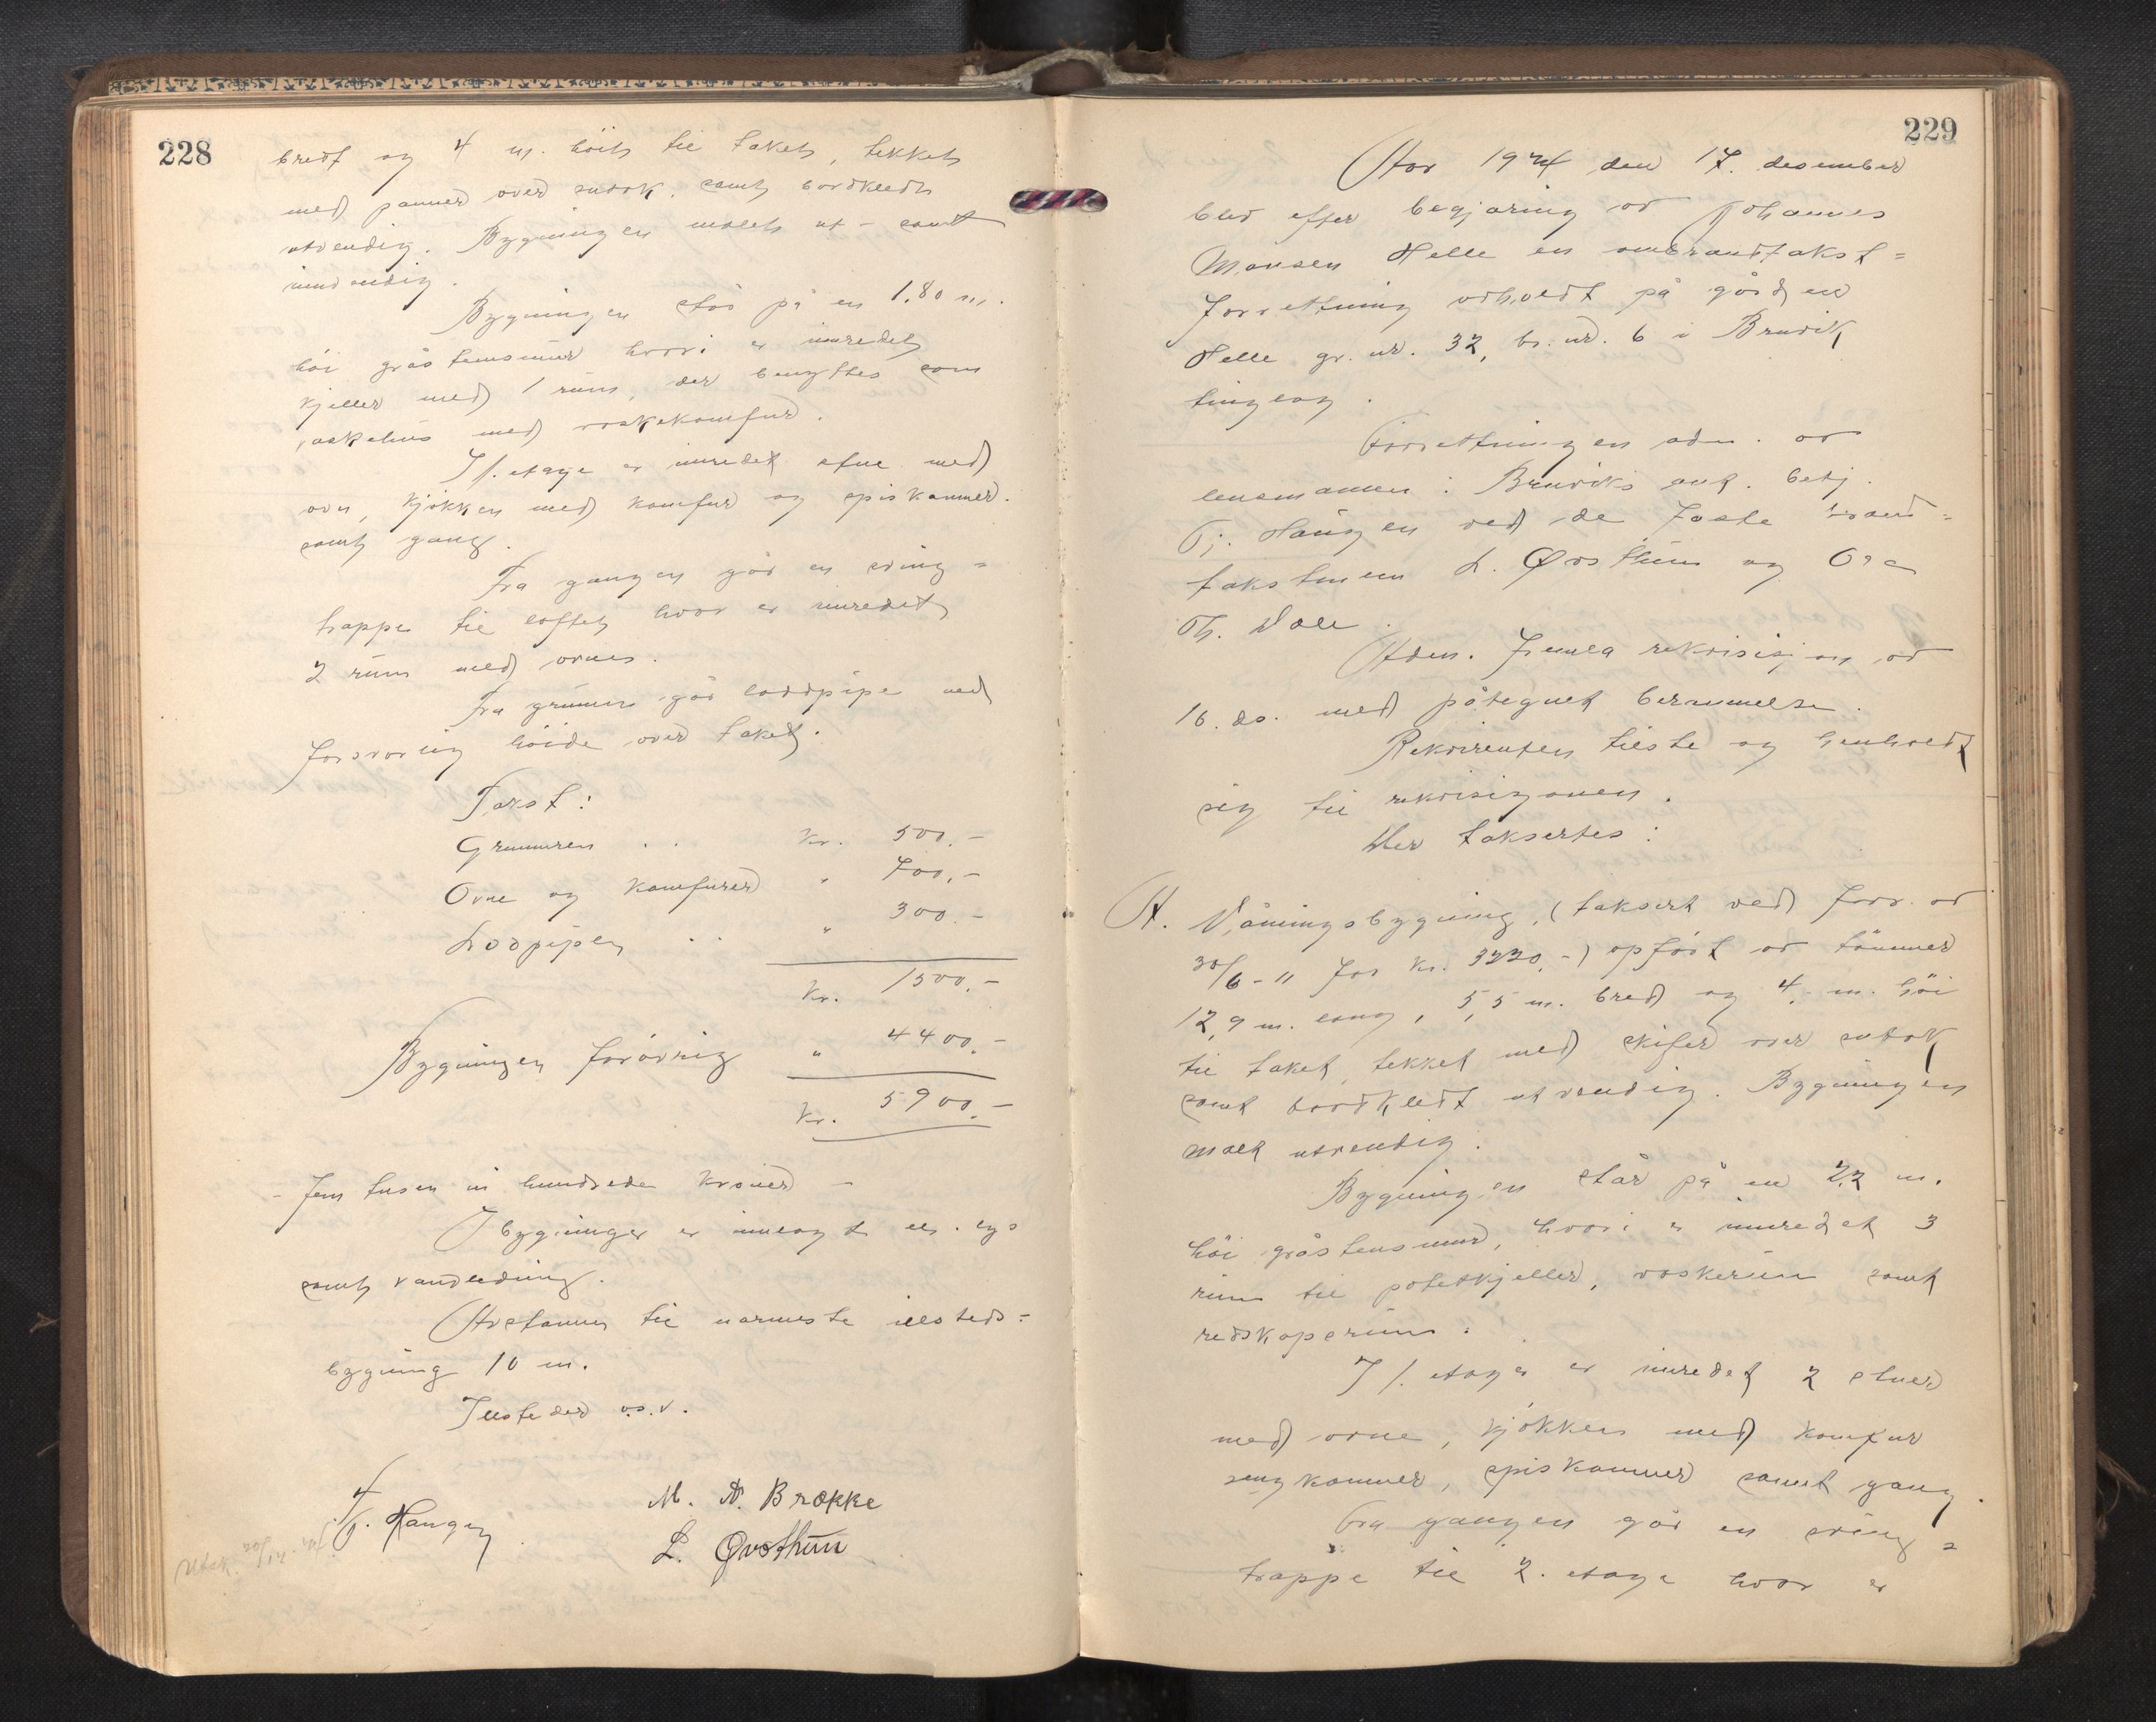 228
bredt og 4 m. höit til taket, tekket
med panner over sutak, samt bordkledt
utvendig. Bygningen malet ut- samt
indvendig.
Bygningen står på en 1.80 m.
höi gråstensmur hvori er innredet
kjeller med 1 rum, der benyttes som
vaskehus med vaskekomfur.
I 1. etage er innredet stue med
ovn, kjökken med komfur og spiskammer.
samt gang.
Fra gangen går en sving=
trappe til loftet hvor er innredet
2 rum med ovner.
Fra grunnen går loddpipe med
forsvarlig höide over taket.
Takst:
Grunmuren . . kr. 500.-
Ovne og komfurer " 700.-
Lodpipen . . " 300.-
kr. 1500.-
Bygningen forövrig " 4400.-
kr. 5900.-
- fem tusen ni hundrede kroner -
I bygninger er innlagt el. lys
samt vandledning.
Avstannen til nærmeste ilsteds=
bygning 10 m.
Illsteder o.s.v.
T. Haugen
M. A. Brække
L. Øvsthun
Utsk. 20/12.
229
År 1924 den 17. desember
blev efter begjæring av Johannes
Monsen Helle en ombrandtakst=
forretning avholdt på gården
Helle gr. nr. 32, br. nr. 6 i Bruvik
tinglag.
Forretningen adm. av
lensmannen i Bruviks aut. betj.
T. Haugen ved de faste brand=
takstmenn L. Øvsthun og Ole
Th. Dale.
Adm. fremla rekvisisjon av
16. ds. med påtegnet berammelse.
Rekvirenten tilste og henholdt
sig til rekvisisjonen.
Der taksertes:
A. Våningsbygning, (taksert ved forr. av
30/6-11 for kr. 3220.-) opfört av tömmer
12,9 m. lang, 5,5 m. bred og 4. m. höi
til taket, tekket med skifer over sutak
samt bordkledt utvendig. Bygningen
malt utvendig.
Bygningen står på en 2,2 m.
höi gråstensmur, hvori er innredet 3
rum til potetkjeller, vaskerum samt
redskapsrum.
I 1. etage er innredet 2 stuer
med ovne, kjökken med komfur
sengkammer, spiskammer samt gang.
Fra gangen går en sving=
trappe til 2. etage hvor er